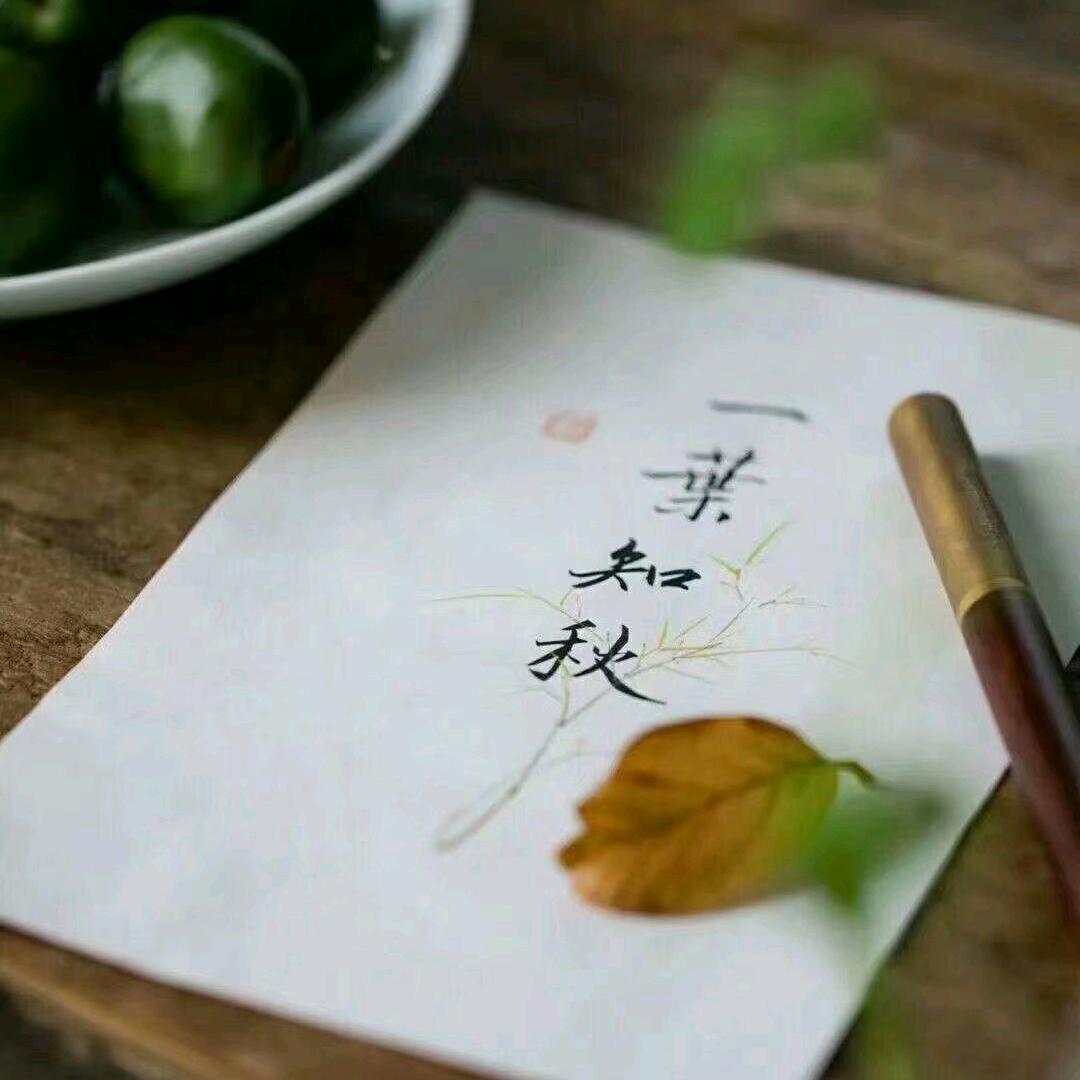 一葉知秋